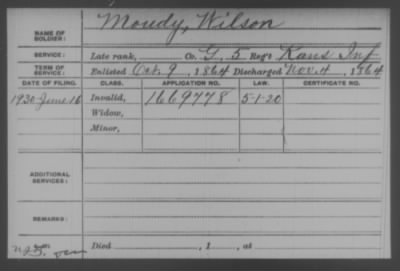 Moudy, Wilson
NAME OF SOLDIER:
SERVICE: Late rank, Co. G, 5 Reg't Kans Inf
TERM OF SERVICE: Enlisted Oct. 9, 1864 Discharged Nov. 4, 1864
DATE OF FILING. CLASS. APPLICATION NO. LAW. CERTIFICATE NO.
1930 June 16 Invalid, 1669778 5-1-20
Widow,
Minor,
ADDITIONAL SERVICES:
REMARKS:
Died , 1 , at